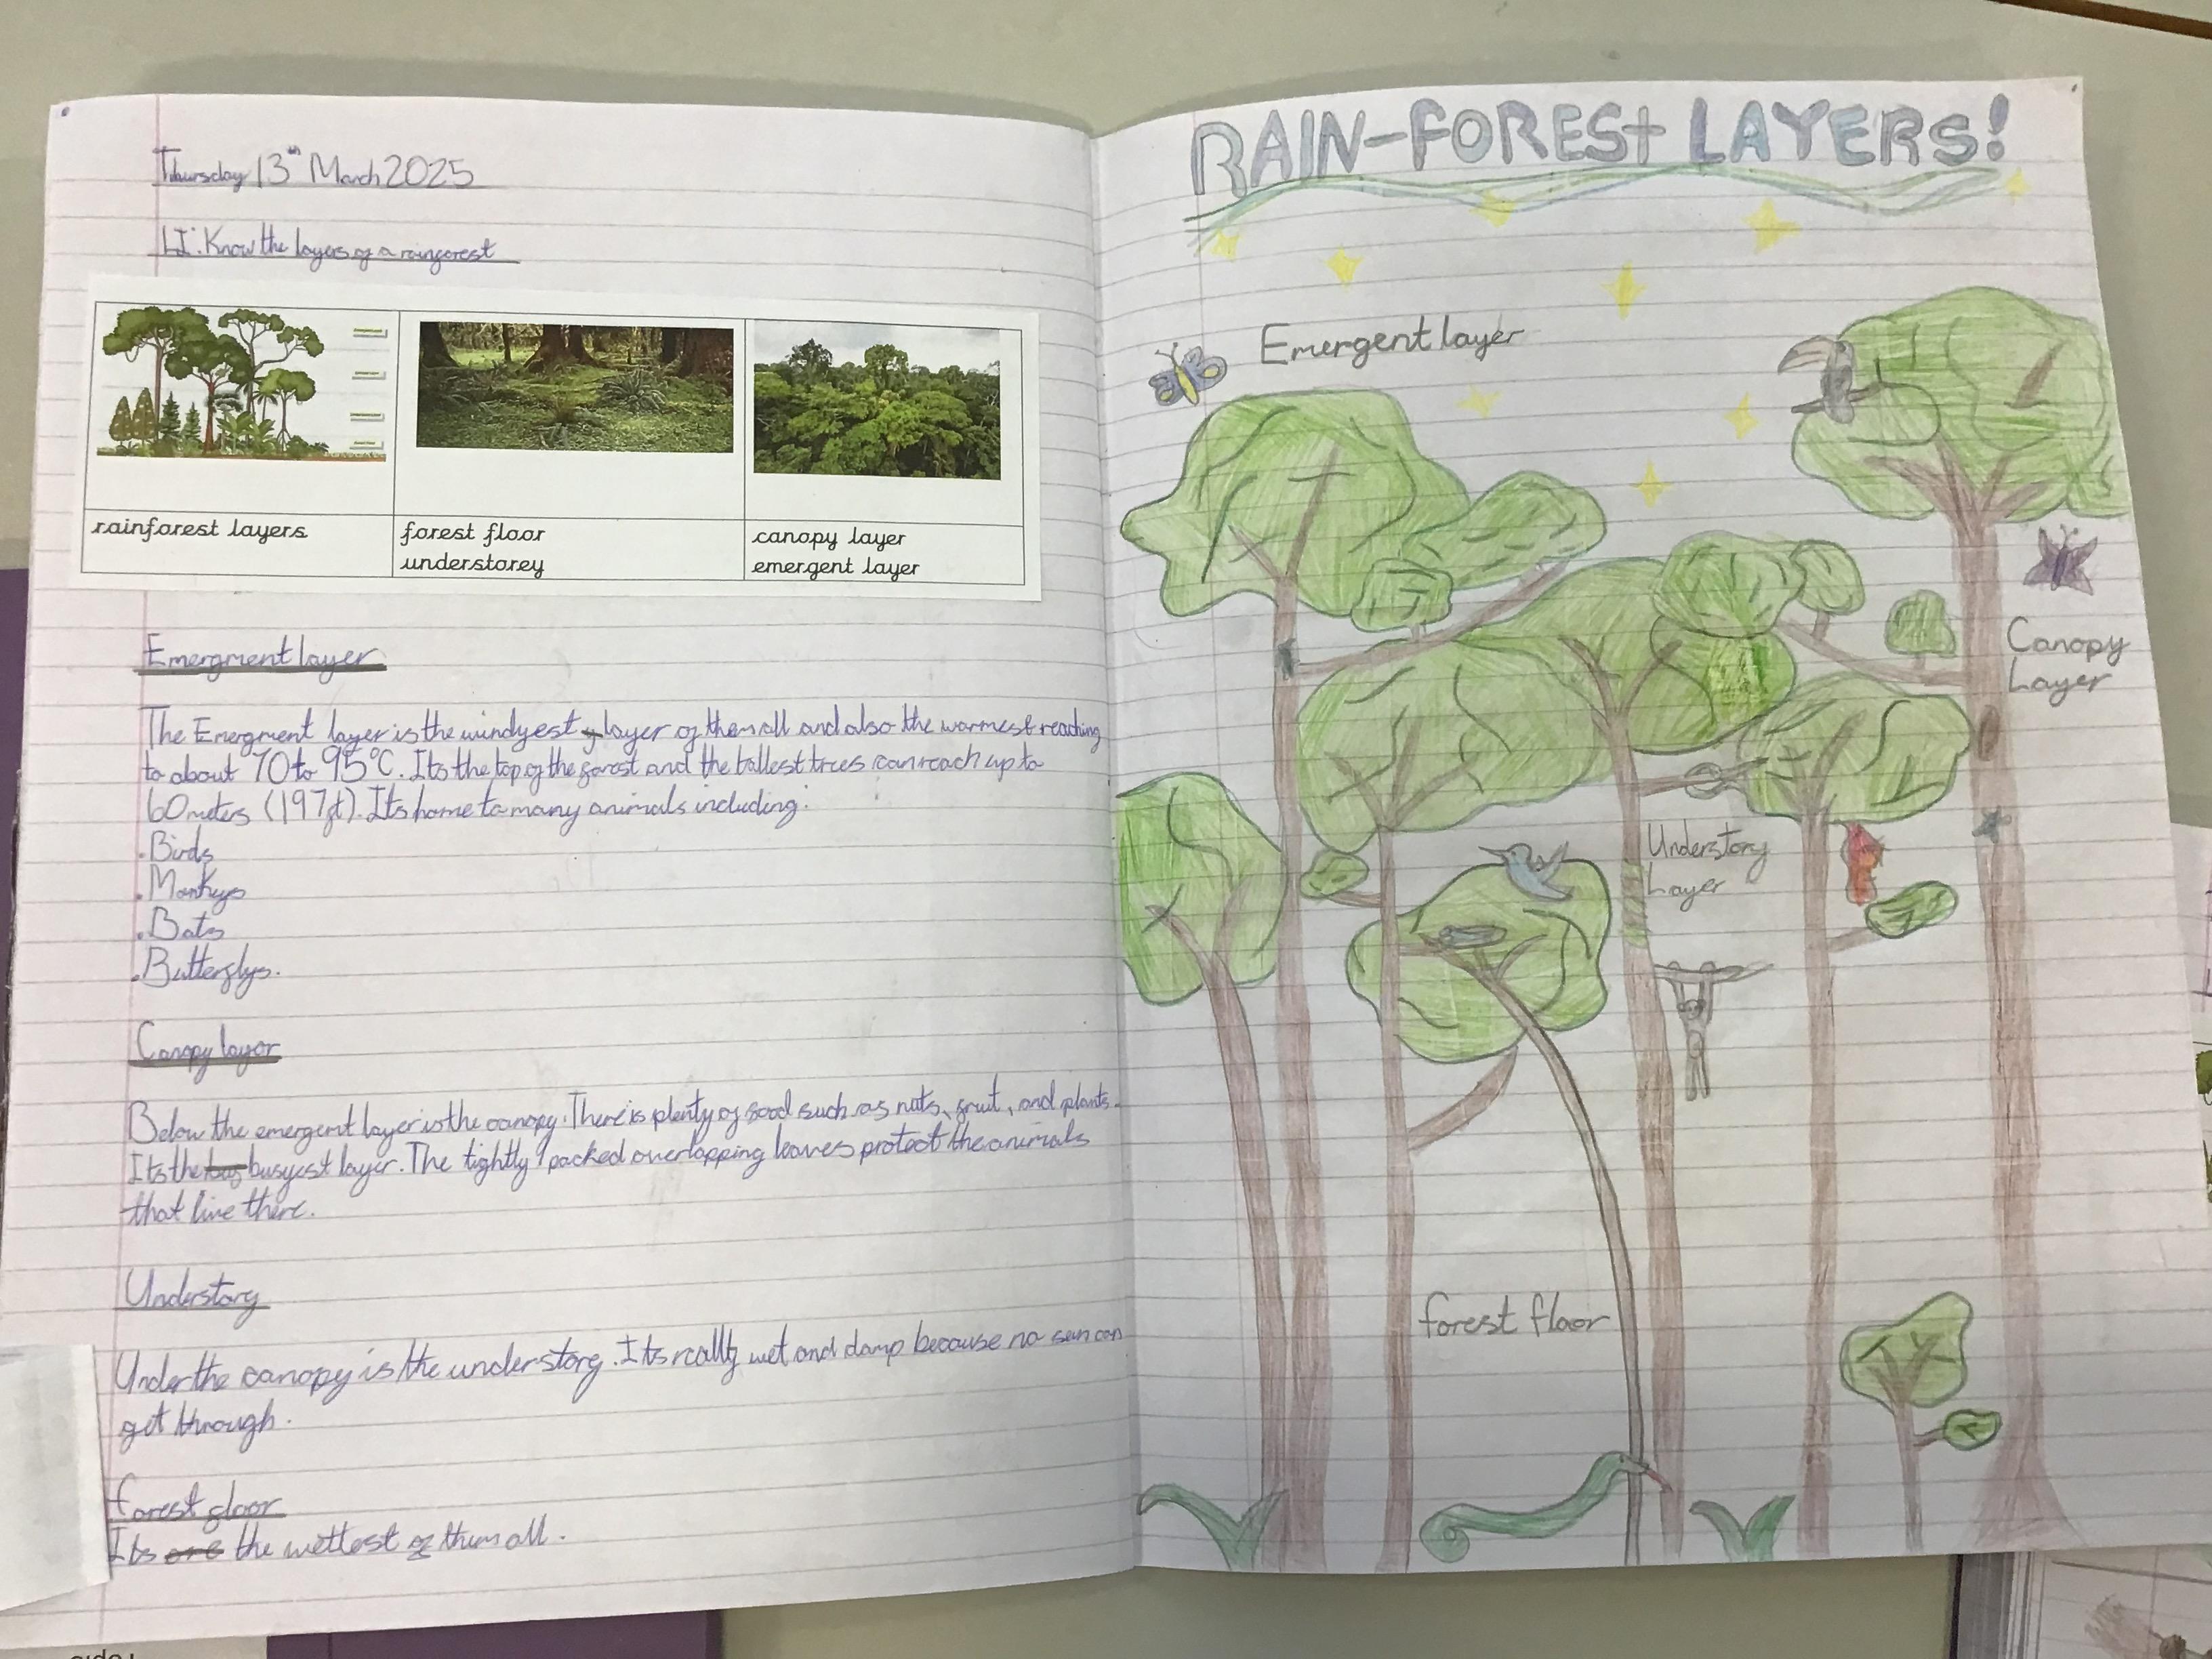 Thursday 13th March 2025
LI: Know the layers of a rainforest
rainforest layers
forest floor
understorey
canopy layer
emergent layer
Emergment layer
The Emergment layer is the windyest layer of them all and also the warmest reaching
to about 70 to 95°C. Its the top of the forest and the tallest trees can reach up to
60 meters (197ft). Its home to many animals including:
.Birds
.Monkeys
.Bats
.Butterflys.
Canopy layer
Below the emergent layer is the canopy. There is plenty of food such as nuts, fruit, and plants.
Its the bus busyest layer. The tightly packed overlapping leaves protect the animals
that live there.
Understory
Under the canopy is the understory. Its really wet and damp because no sun can
get through.
forest floor
Its are the wettest of them all.
RAIN-FOREST LAYERS!
Emergent layer
Canopy
Layer
Understory
Layer
forest floor